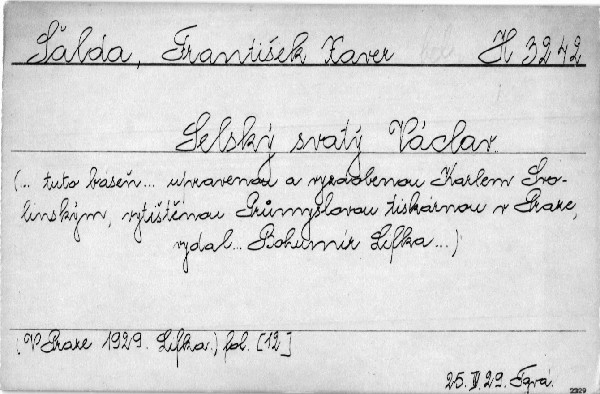 Šalda, František Xaver H 3242
Selský svatý Václav.
(... tuto báseň... upravenou a vyzdobenou Karlem Svo-
linským, vytištěnou Průmyslovou tiskárnou v Praze,
vydal... Bohumír Lifka...)
(V Praze 1929. Lifka.) fol. [12]
25. V. 29.
2329